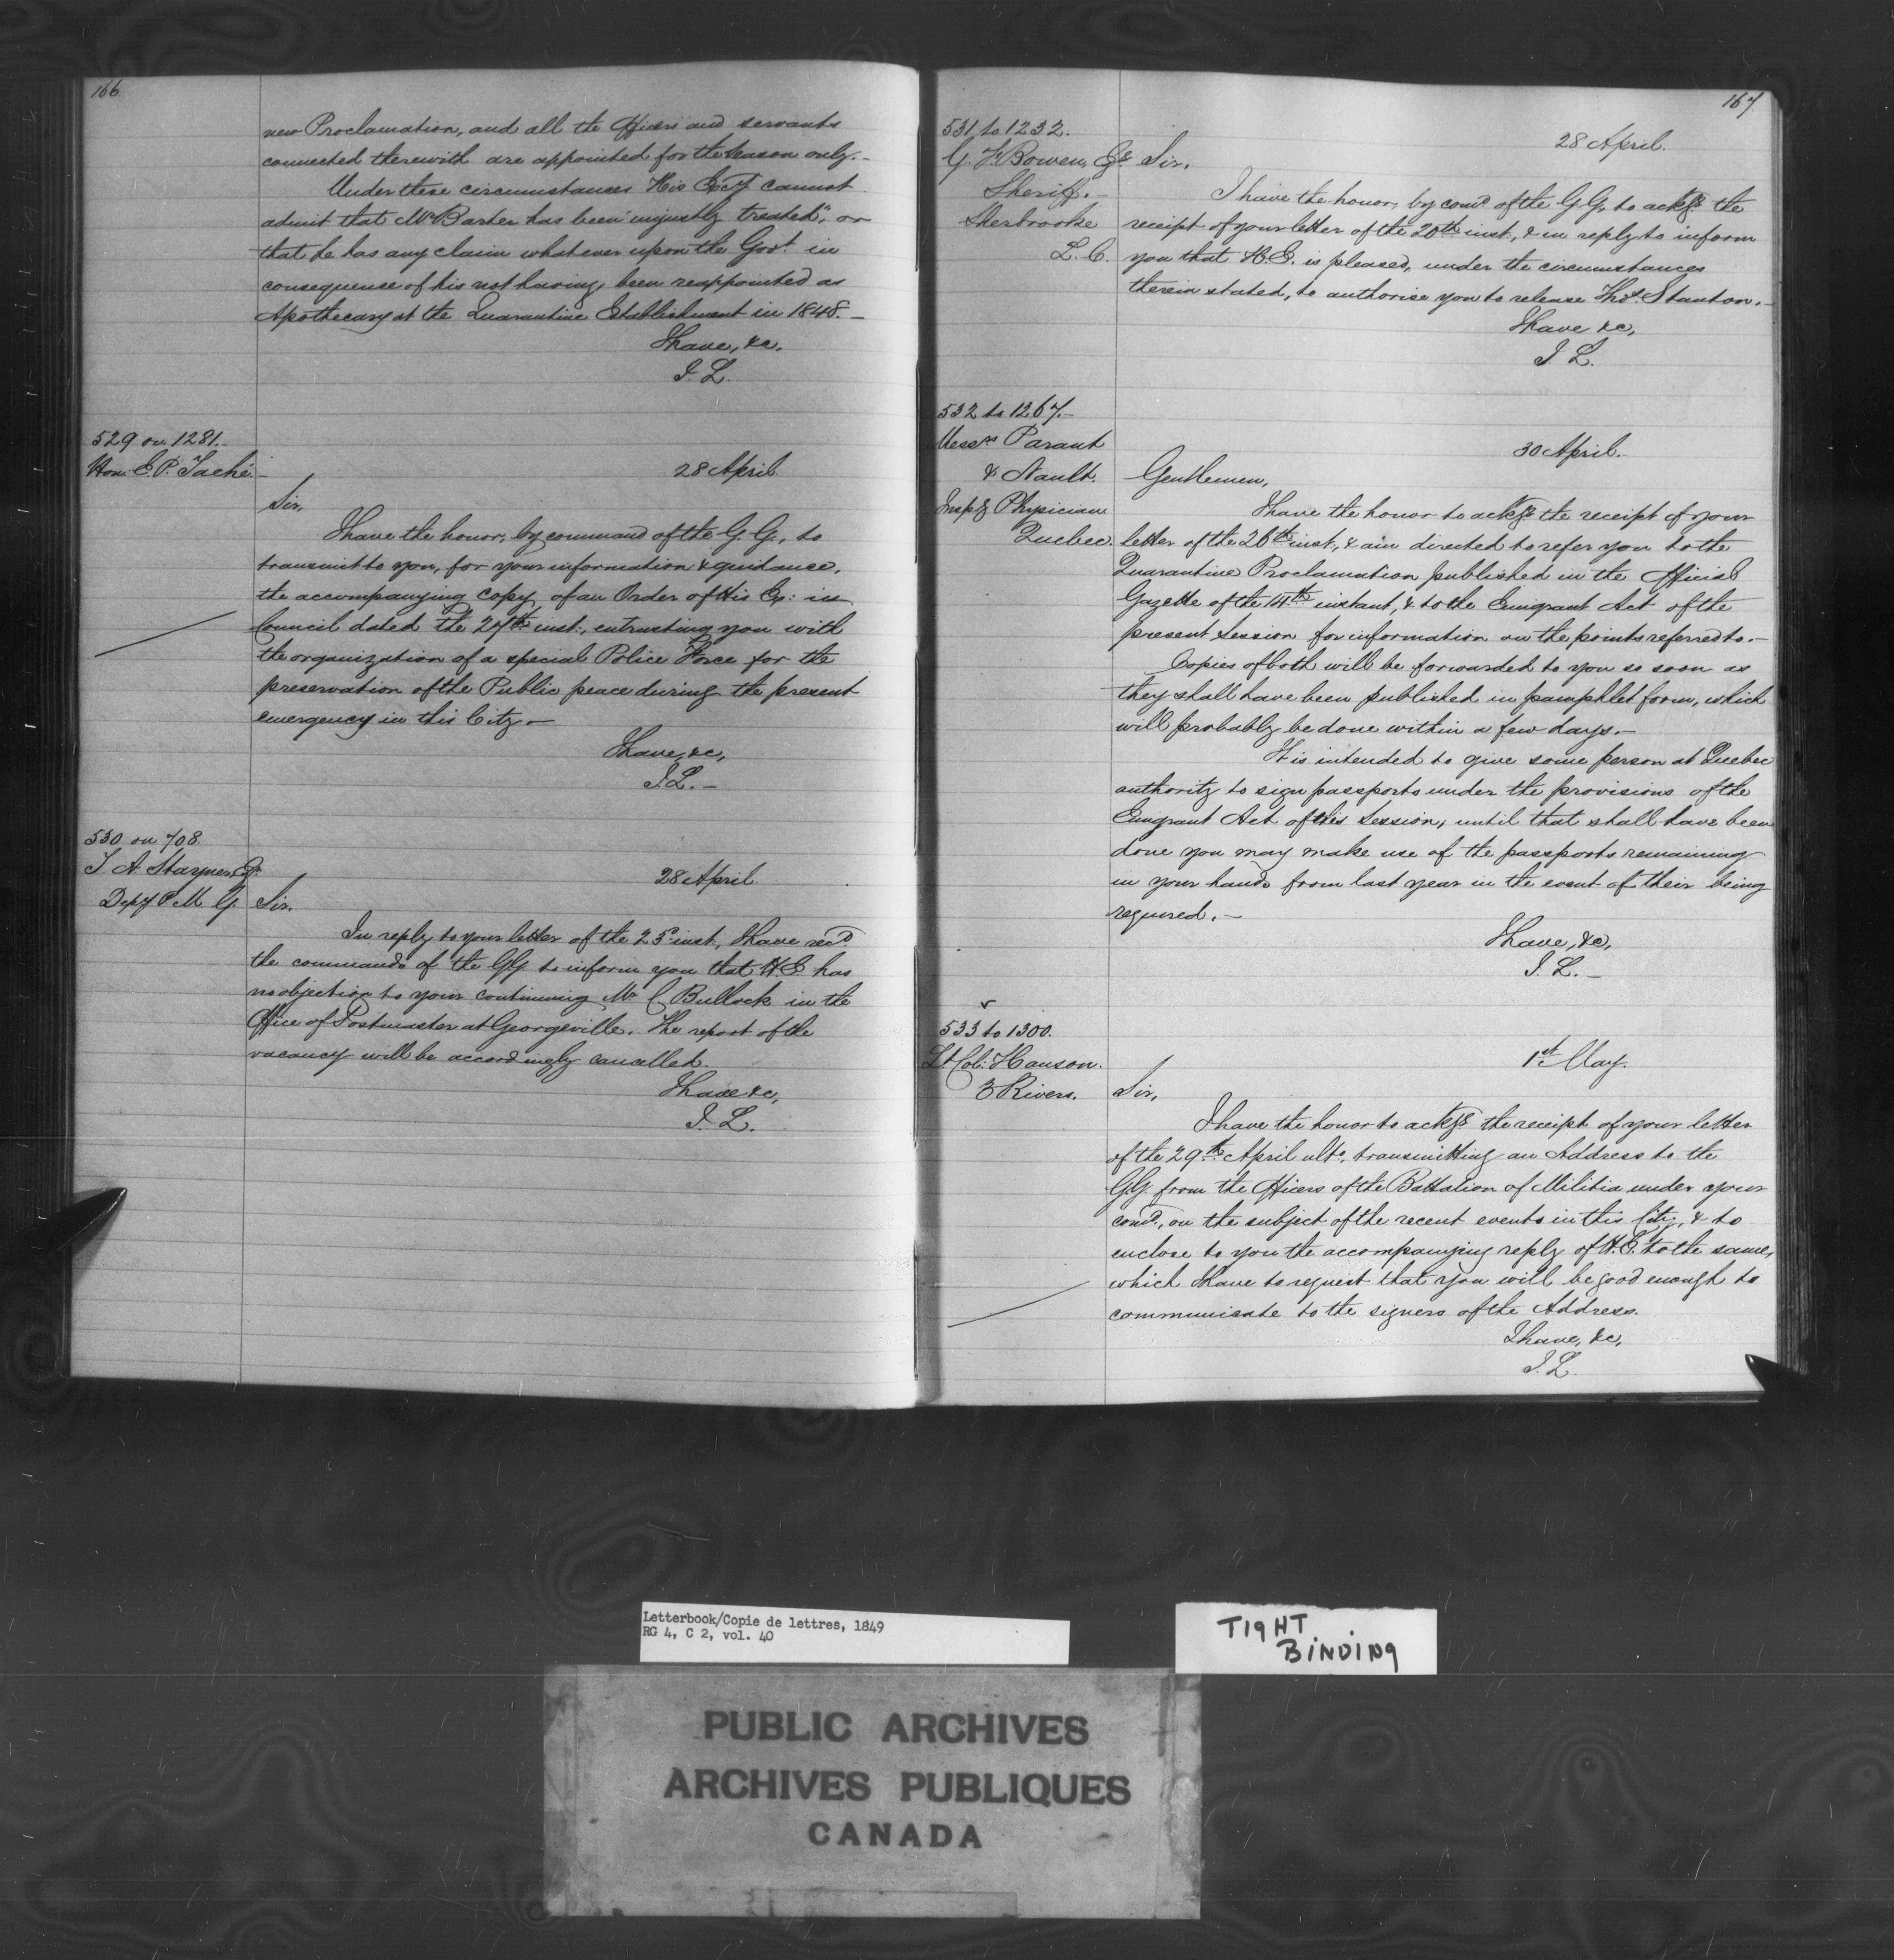 166
new Proclamation, and all the Officers and servants
connected therewith are appointed for the Season only.-
Under these circumstances His Excy cannot
admit that Mr Barker has been "unjustly treated", or
that he has any claim whatever upon the Govt. in
consequence of his not having been reappointed as
Apothecary at the Quarantine Establishment in 1848.-
I have, &c,
J. L.
529 on 1281.-
Hon: E. P. Taché.-
28 April
Sir,
I have the honor, by command of the G. G., to
transmit to you, for your information & guidance,
the accompanying Copy of an Order of His Ex: in
Council dated the 27th inst:, entrusting you with
the organization of a special Police Force for the
preservation of the Public peace during the present
emergency in this City.-
I have, &c,
J. L.-
530 on 708.
T. A. Stayner, Esqr.
Depy P. M. G.
28 April
Sir,
In reply to your letter of the 25th inst, I have recd.
the commands of the GG to inform you that H. E. has
no objection to your continuing Mr C. Bullock in the
Office of Postmaster at Georgeville. The report of the
vacancy will be accordingly cancelled.
I have &c,
J. L.
167
531 to 1232.
G. F. Bowen, Esqr
Sheriff.-
Sherbrooke
L. C.
28 April.
Sir,
I have the honor, by comd of the G G, to ackge the
receipt of your letter of the 20th inst., & in reply to inform
you that H. E. is pleased, under the circumstances
therein stated, to authorise you to release Thos. Stanton.-
I have &c,
J. L.
532 to 1267.-
Messrs Parant
& Nault.
Inspg Physicians
Quebec.
30 April.
Gentlemen,
I have the honor to ackge the receipt of your
letter of the 26th inst:, & am directed to refer you to the
Quarantine Proclamation published in the Official
Gazette of the 14th instant, & to the Emigrant Act of the
present Session for information on the points referred to.-
Copies of both will be forwarded to you so soon as
they shall have been published in pamphlet form, which
will probably be done within a few days.-
It is intended to give some person at Quebec
authority to sign passports under the provisions of the
Emigrant Act of this Session; until that shall have been
done you may make use of the passports remaining
in your hands from last year in the event of their being
required.-
I have, &c,
J. L.-
533 to 1300.
Lt Col: Hanson.
3 Rivers.
1st May.
Sir,
I have the honor to ackge the receipt of your letter
of the 29th April ulto. transmitting an Address to the
GG. from the Officers of the Battalion of Militia under your
comd., on the subject of the recent events in this City, & to
enclose to you the accompanying reply of H. E. to the same,
which I have to request that you will be good enough to
communicate to the signers of the Address.
I have, &c,
J. L.
Letterbook/Copie de lettres, 1849
RG 4, C 2, vol. 40
TIGHT
BINDING
PUBLIC ARCHIVES
ARCHIVES PUBLIQUES
CANADA